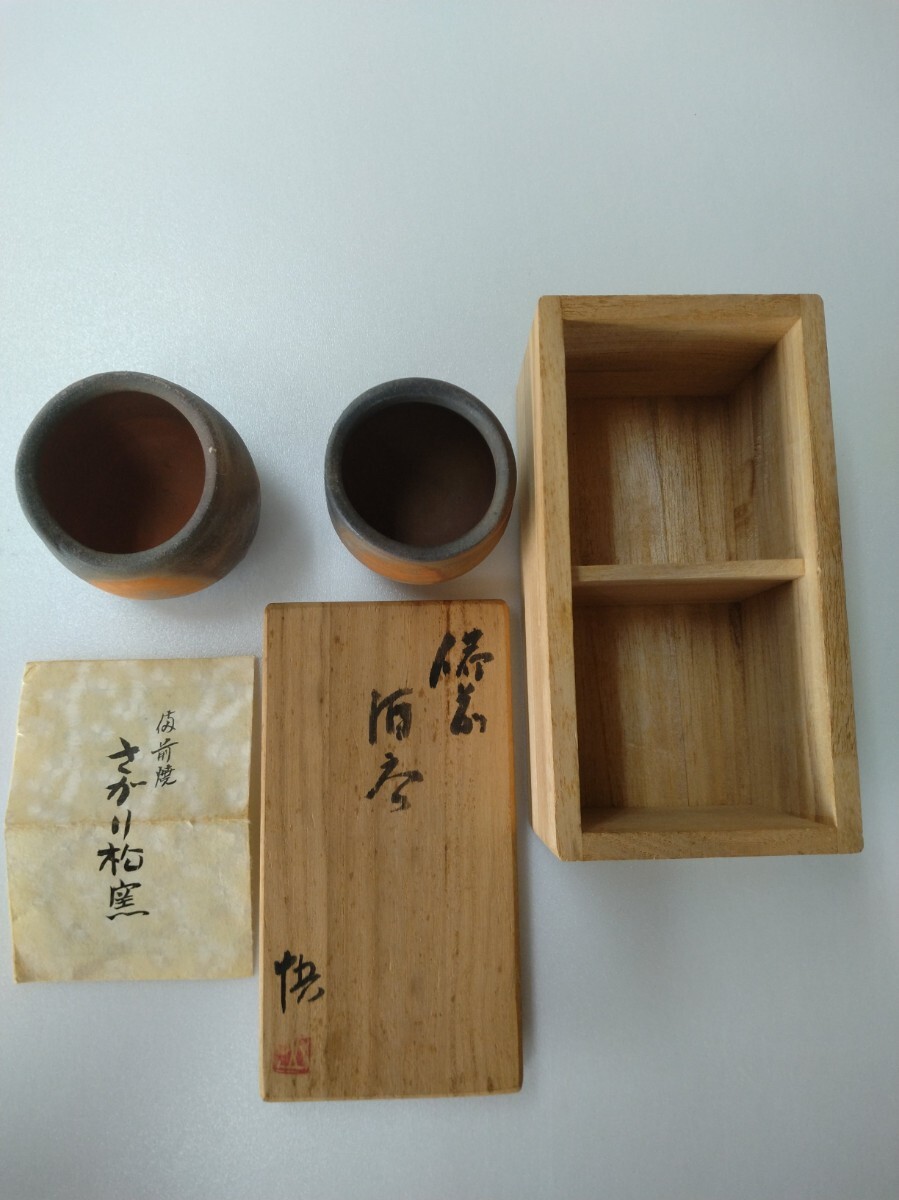 備前
酒呑
快
備前焼
さがり松窯